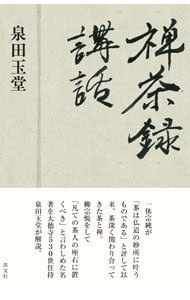 禅茶録
講話
泉田玉堂
一休宗純が
「茶は仏道の妙所に叶う
ものである」と評して以
来、深く関わり合って
きた茶と禅。
柳宗悦をして
「凡ての茶人の座右に置
くべき」と言わしめた名
著を大徳寺530世住持
泉田玉堂が解説。
淡交社